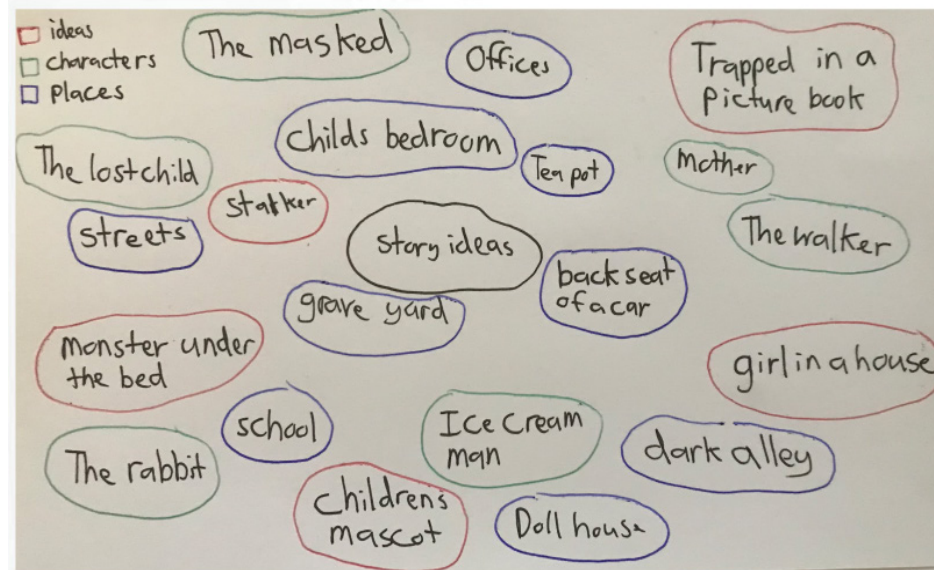 ideas
characters
places
The masked
Offices
Trapped in a
picture book
Childs bedroom
Tea pot
Mother
The lost child
Stalker
The walker
streets
story ideas
back seat
of a car
grave yard
monster under
the bed
girl in a house
school
Ice Cream
man
dark alley
The rabbit
childrens
mascot
Doll house